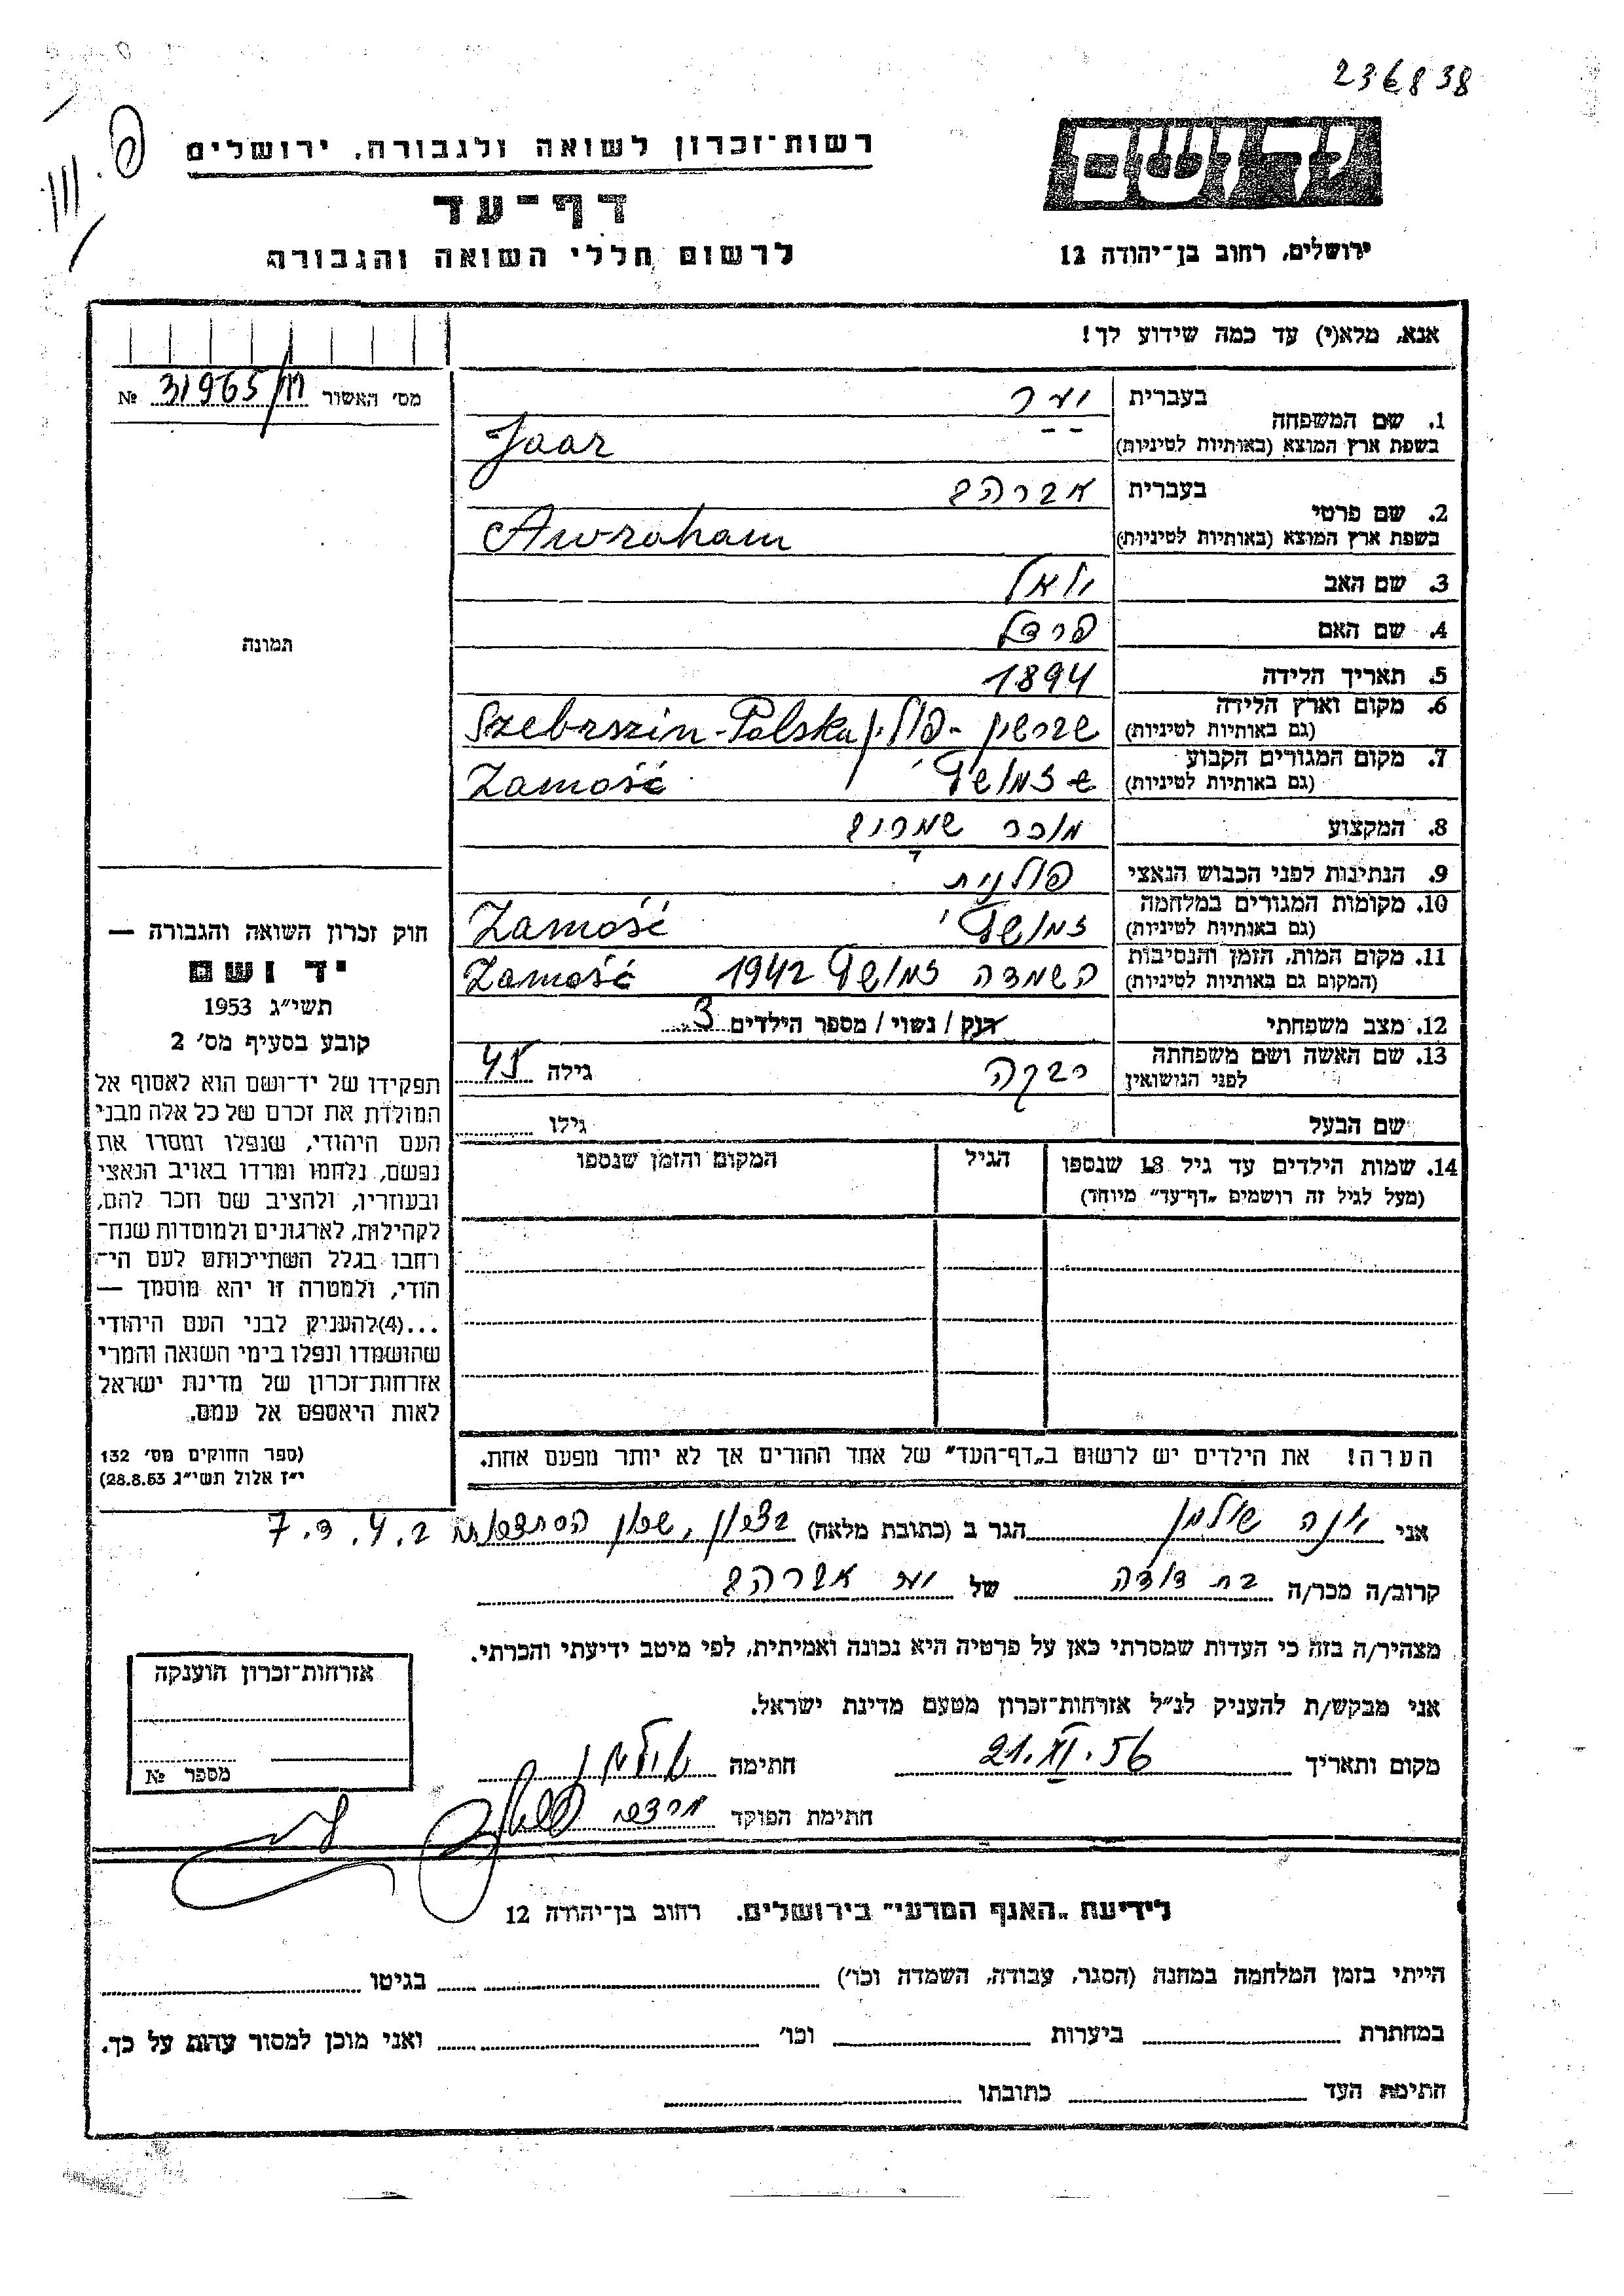 236838
יד ושם
רשות־זכרון לשואה ולגבורה, ירושלים
דף־עד
לרשום חללי השואה והגבורה
ירושלים, רחוב בן־יהודה 12
אנא, מלא(י) עד כמה שידוע לך!
מס' האשור 31965/ № 
1. שם המשפחה בעברית יער
בשפת ארץ המוצא (באותיות לטיניות) Jaar
2. שם פרטי בעברית אברהם
בשפת ארץ המוצא (באותיות לטיניות) Awraham
3. שם האב יואל
4. שם האם פרדל
5. תאריך הלידה 1894
6. מקום וארץ הלידה (גם באותיות לטיניות) שברשין - פולין Szebrszin-Polska
7. מקום המגורים הקבוע (גם באותיות לטיניות) Zamość
8. המקצוע מוכר
9. הנתינות לפני הכבוש הנאצי פולנית
10. מקומות המגורים במלחמה (גם באותיות לטיניות) Zamość
11. מקום המות, הזמן והנסיבות (המקום גם באותיות לטיניות) השמדה 1942 Zamość
12. מצב משפחתי רוק / נשוי / מספר הילדים 3
13. שם האשה ושם משפחתה לפני הנשואין רבקה גילה 45
שם הבעל גילו
14. שמות הילדים עד גיל 18 שנספו הגיל המקום והזמן שנספו
(מעל לגיל זה רושמים „דף־עד" מיוחד)
הערה! את הילדים יש לרשום ב„דף־העד" של אחד ההורים אך לא יותר מפעם אחת.
תמונה
חוק זכרון השואה והגבורה —
יד ושם
תשי"ג 1953
קובע בסעיף מס' 2
תפקידו של יד־ושם הוא לאסוף אל
המולדת את זכרם של כל אלה מבני
העם היהודי, שנפלו ומסרו את
נפשם, נלחמו ומרדו באויב הנאצי
ובעוזריו, ולהציב שם וזכר להם,
לקהילות, לארגונים ולמוסדות שנח־
רחבו בגלל השתייכותם לעם הי־
הודי, ולמטרה זו יהא מוסמך —
...(4)להעניק לבני העם היהודי
שהושמדו ונפלו בימי השואה והמרי
אזרחות־זכרון של מדינת ישראל
לאות היאספם אל עמם.
(ספר החוקים מס' 132
י"ז אלול תשי"ג 28.8.53)
אני שולמן הגר ב (כתובת מלאה) שכון הסתדרות 7.ד.4.2
קרוב/ה מכר/ה בת דודה של אברהם
מצהיר/ה בזה כי העדות שמסרתי כאן על פרטיה היא נכונה ואמיתית, לפי מיטב ידיעתי והכרתי.
אני מבקש/ת להעניק לנ"ל אזרחות־זכרון מטעם מדינת ישראל.
מקום ותאריך 21.XI.56 חתימה שולמן
חתימת הפוקד
אזרחות־זכרון הוענקה
מספר №
לידיעת „האגף המדעי" בירושלים, רחוב בן־יהודה 12
הייתי בזמן המלחמה במחנה (הסגר, עבודה, השמדה וכו') בגיטו
במחתרת ביערות וכו' ואני מוכן למסור עדות על כך.
חתימת העד כתובתו